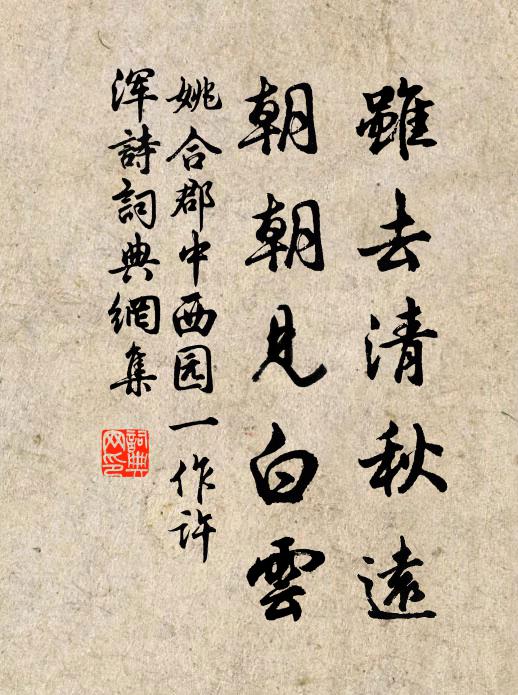 雖去清秋遠
朝朝見白雲
姚合郡中西园一作许
浑詩詞典網集
詞典网印